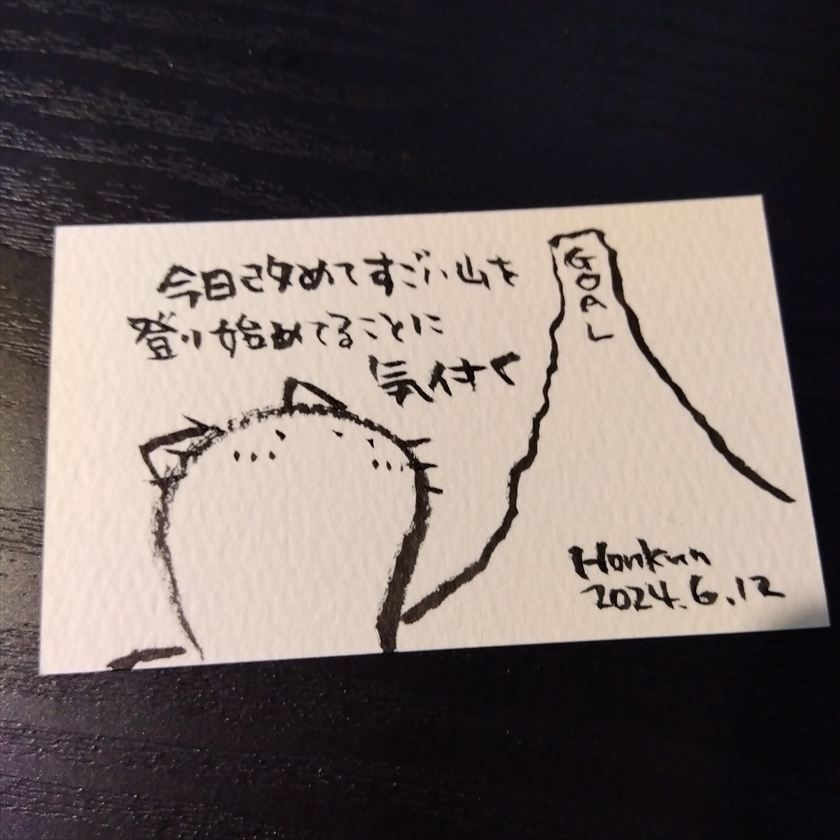 今日改めてすごい山を
登り始めてることに
気付く
GOAL
Honkun
2024.6.12